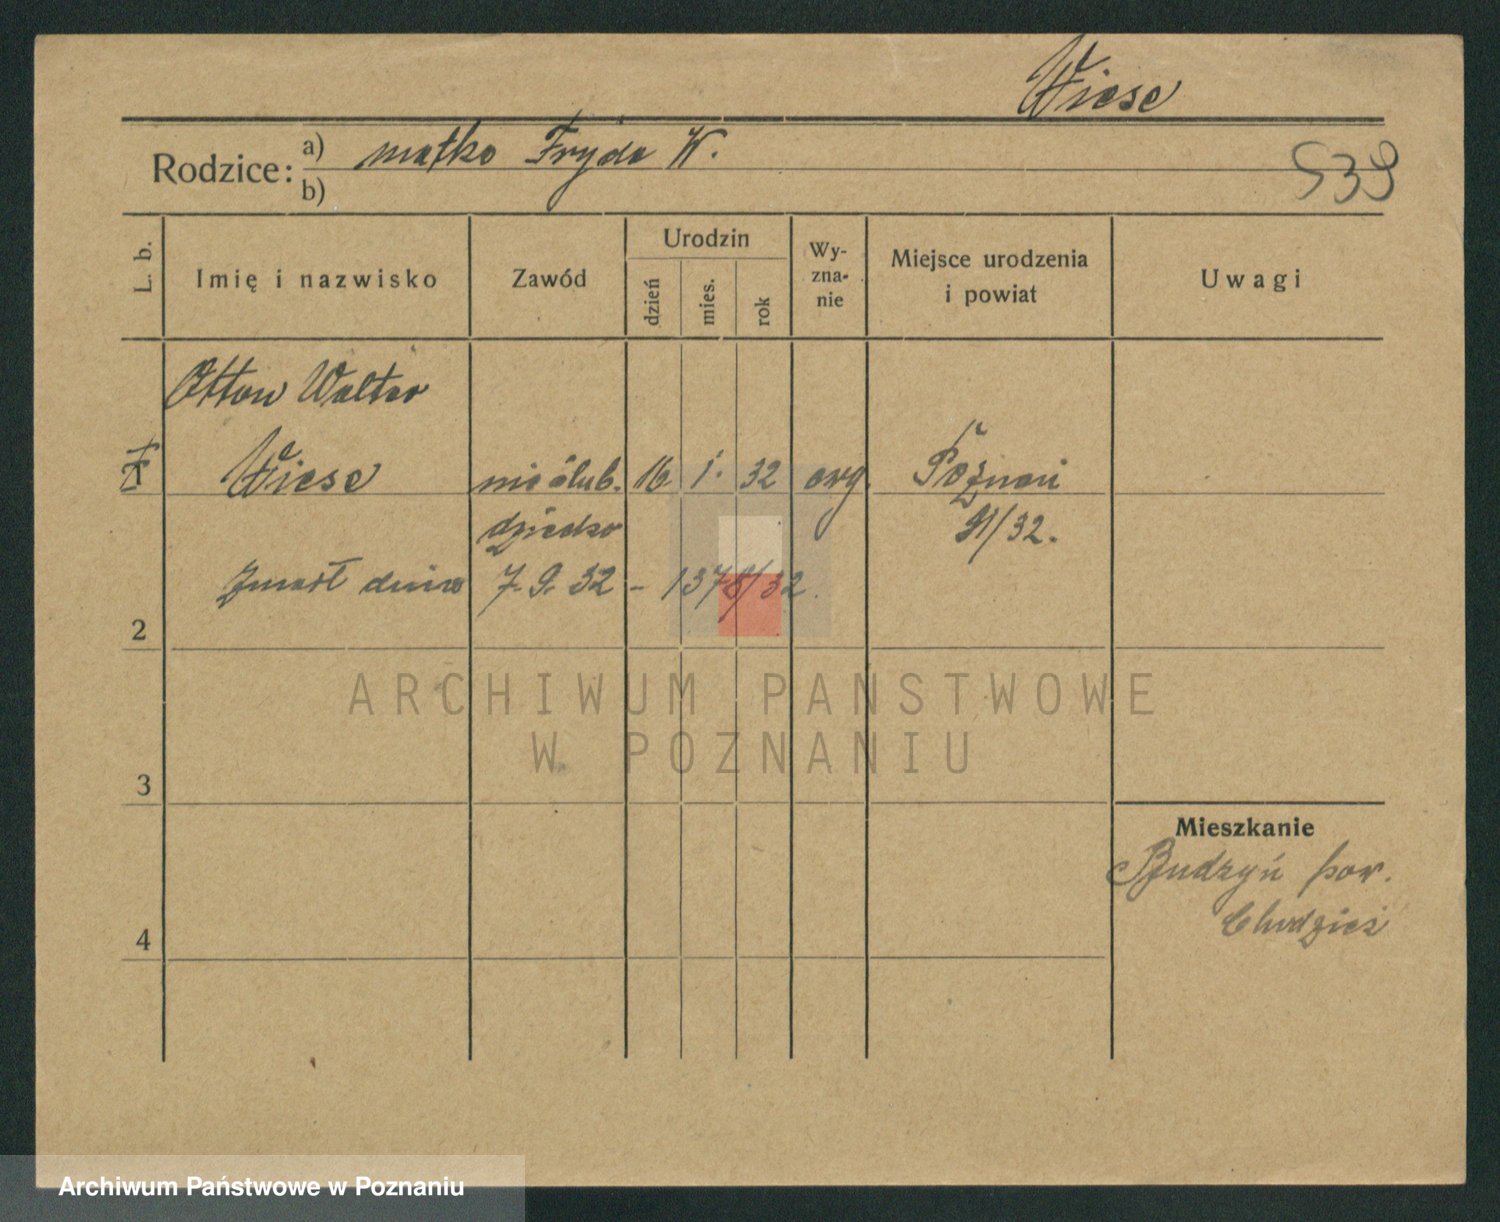 Wiese
Rodzice: a) matka Fryda W.
b)
539
L. b.
Imię i nazwisko
Zawód
Urodzin
dzień
mies.
rok
Wy-
zna-
nie
Miejsce urodzenia
i powiat
Uwagi
Otton Walter
1 Wiese nieślub. 16 1. 32 ewg. Poznań
dziecko 91/32.
Zmarł dnia 7.9.32 - 1378/32.
2
ARCHIWUM PAŃSTWOWE
W POZNANIU
3
Mieszkanie
Budzyń pow.
Chodzież
4
Archiwum Państwowe w Poznaniu